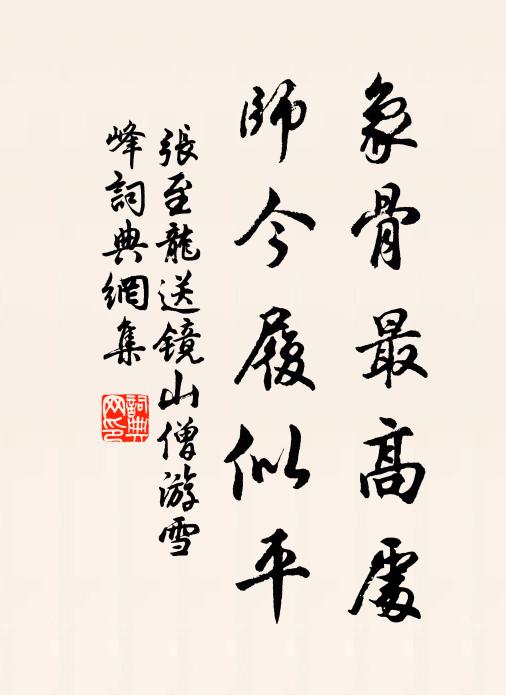 象骨最高處
師今履似平
張至龍送鏡山僧游雪
峰詞典網集
詞典
网印